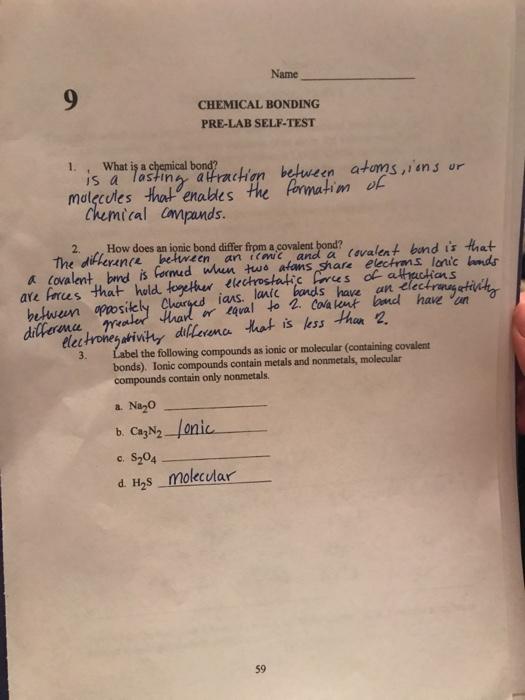 Name
9
CHEMICAL BONDING
PRE-LAB SELF-TEST
1. What is a chemical bond?
is a lasting attraction between atoms, ions or
molecules that enables the formation of
Chemical Compands.
2. How does an ionic bond differ from a covalent bond?
The difference between an iconic and a covalent bond is that
a covalent bond is formed when two atoms share electrons. Ionic bonds
are forces that hold together electrostatic forces of attractions
between oppositely Charged ions. Ionic bonds have an electronegativity
difference greater than or equal to 2. Covalent bond have an
electronegativity difference that is less than 2.
3. Label the following compounds as ionic or molecular (containing covalent
bonds). Ionic compounds contain metals and nonmetals, molecular
compounds contain only nonmetals.
a. Na₂O
b. Ca₃N₂ Ionic
c. S₂O₄
d. H₂S molecular
59